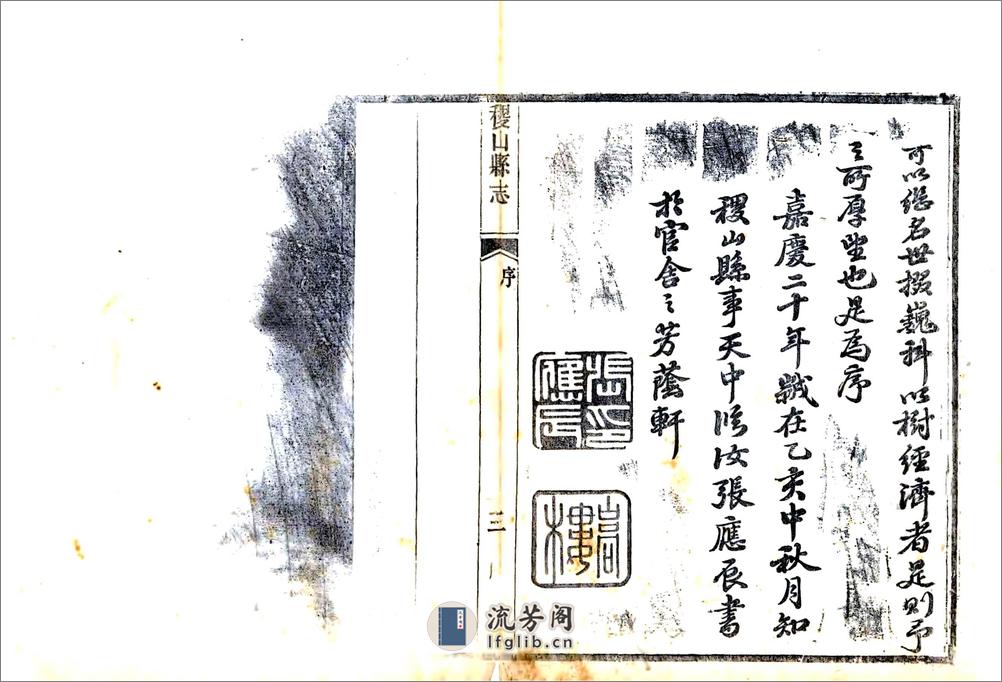 可以繼名世掇巍科以樹經濟者是則予
之所厚望也是為序
嘉慶二十年歲在乙亥中秋月知
稷山縣事天中張應辰書
於官舍之芳蔭軒
張應辰印
樓
稷山縣志
序
三
流芳阁
lfglib.cn